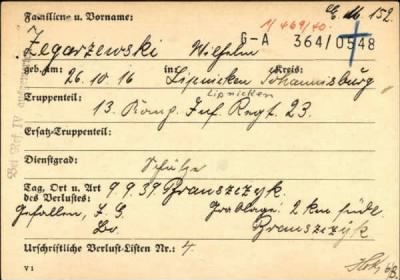 Familien- u. Vorname:
E. 16 152.
1/469/40.
Zegarzewski Wilhelm
G-A 364/0548
geb. am: 26.10.16 in Lipnicken Kreis: Johannisburg
Lipnicken
Truppenteil: 13. Komp. Inf. Regt. 23.
Ersatz-Truppenteil:
Dienstgrad: Schütze
Tag, Ort u. Art des Verlustes: 9.9.39 Branszczyk.
Gefallen, Grablage: 2 km südl.
Branszczyk
Urschriftliche Verlust-Listen Nr.: 4
V 1